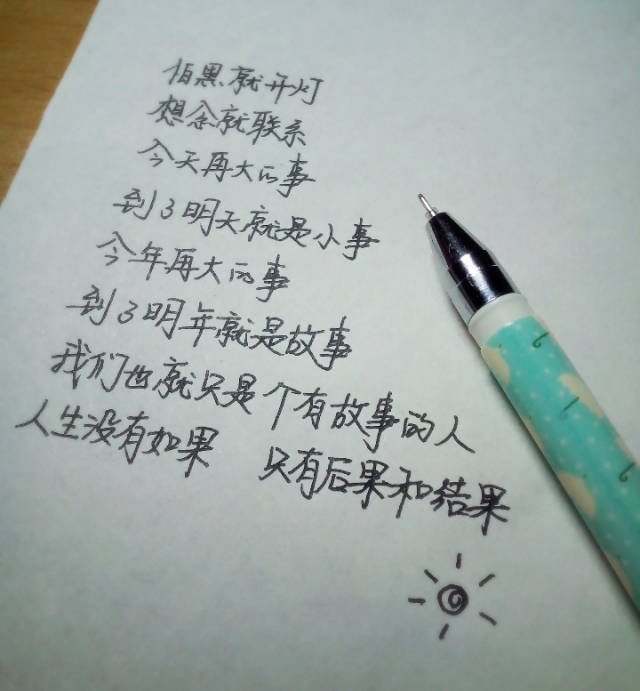 怕黑就开灯
想念就联系
今天再大的事
到了明天就是小事
今年再大的事
到了明年就是故事
我们也就只是个有故事的人
人生没有如果 只有后果和结果